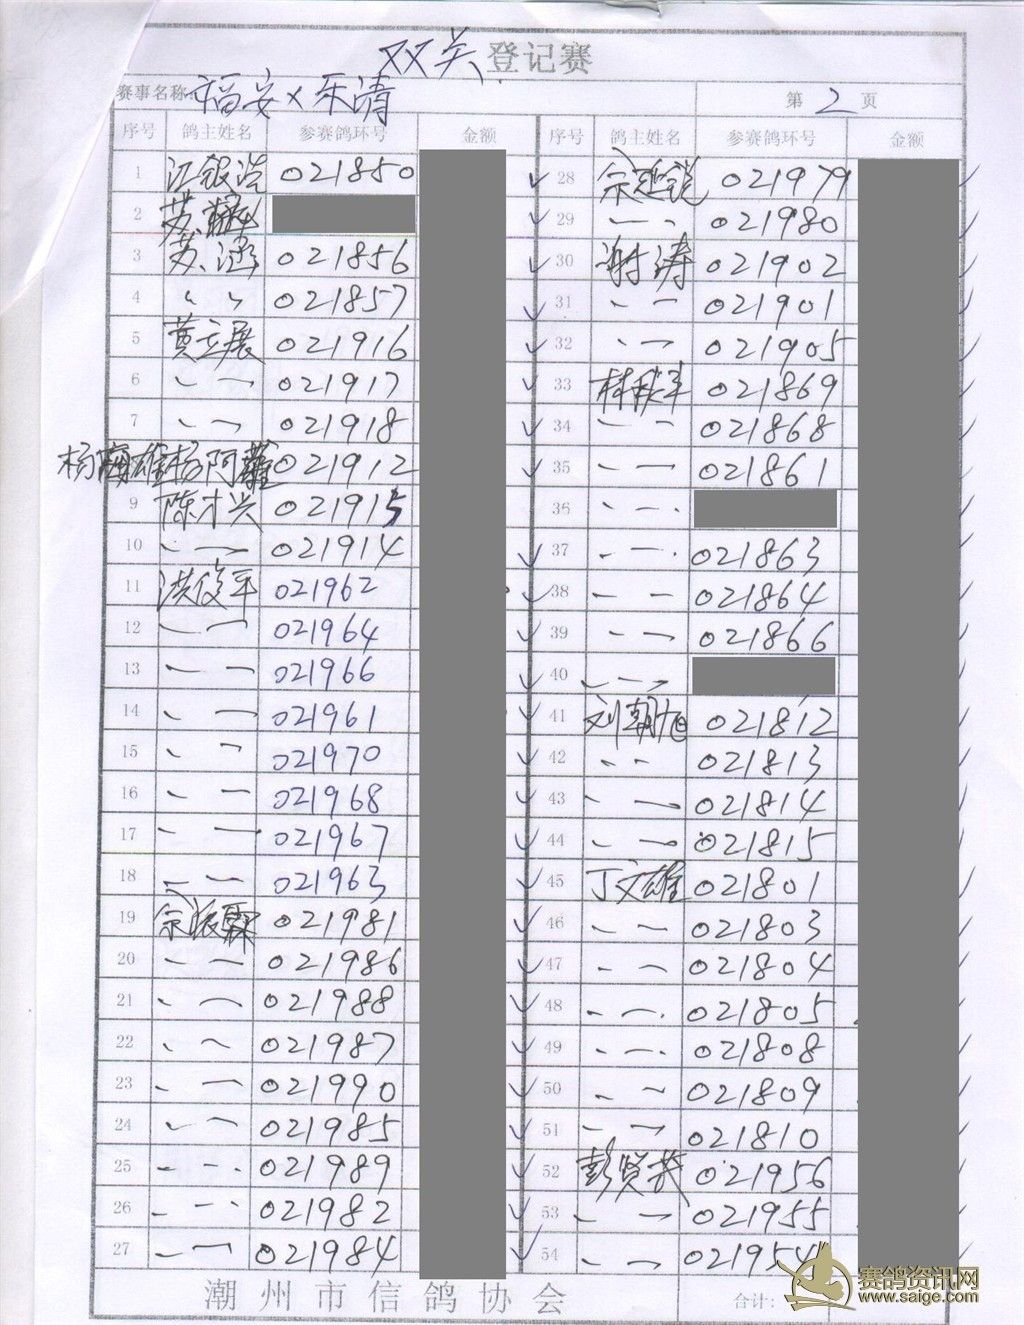 双关登记赛
赛事名称: 福安×乐清 第 2 页
序号 鸽主姓名 参赛鸽环号 金额 序号 鸽主姓名 参赛鸽环号 金额
1 江银浩 021850 ✓ 28 021979 ✓
2 苏 ✓ 29 〃 021980 ✓
3 苏涵 021856 ✓ 30 谢涛 021902 ✓
4 〃 021857 ✓ 31 〃 021901 ✓
5 黄立展 021916 ✓ 32 〃 021905 ✓
6 〃 021917 ✓ 33 林 021869 ✓
7 〃 021918 ✓ 34 〃 021868 ✓
杨海雄杨阿 021912 ✓ 35 〃 021861 ✓
9 陈才兴 021915 36 〃
10 〃 021914 ✓ 37 〃 021863 ✓
11 洪俊平 021962 ✓ 38 〃 021864 ✓
12 〃 021964 ✓ 39 〃 021866 ✓
13 〃 021966 ✓ 40 〃 ✓
14 〃 021961 ✓ 41 刘朝旭 021812 ✓
15 〃 021970 ✓ 42 〃 021813 ✓
16 〃 021968 ✓ 43 〃 021814 ✓
17 〃 021967 ✓ 44 〃 021815 ✓
18 〃 021963 ✓ 45 丁文雄 021801 ✓
19 021981 ✓ 46 〃 021803 ✓
20 〃 021986 ✓ 47 〃 021804 ✓
21 〃 021988 ✓ 48 〃 021805 ✓
22 〃 021987 ✓ 49 〃 021808 ✓
23 〃 021990 ✓ 50 〃 021809 ✓
24 〃 021985 ✓ 51 〃 021810 ✓
25 〃 021989 ✓ 52 彭贤 021956 ✓
26 〃 021982 ✓ 53 〃 021955 ✓
27 〃 021984 ✓ 54 〃 021954
潮州市信鸽协会 合计:
赛鸽资讯网
www.saige.com